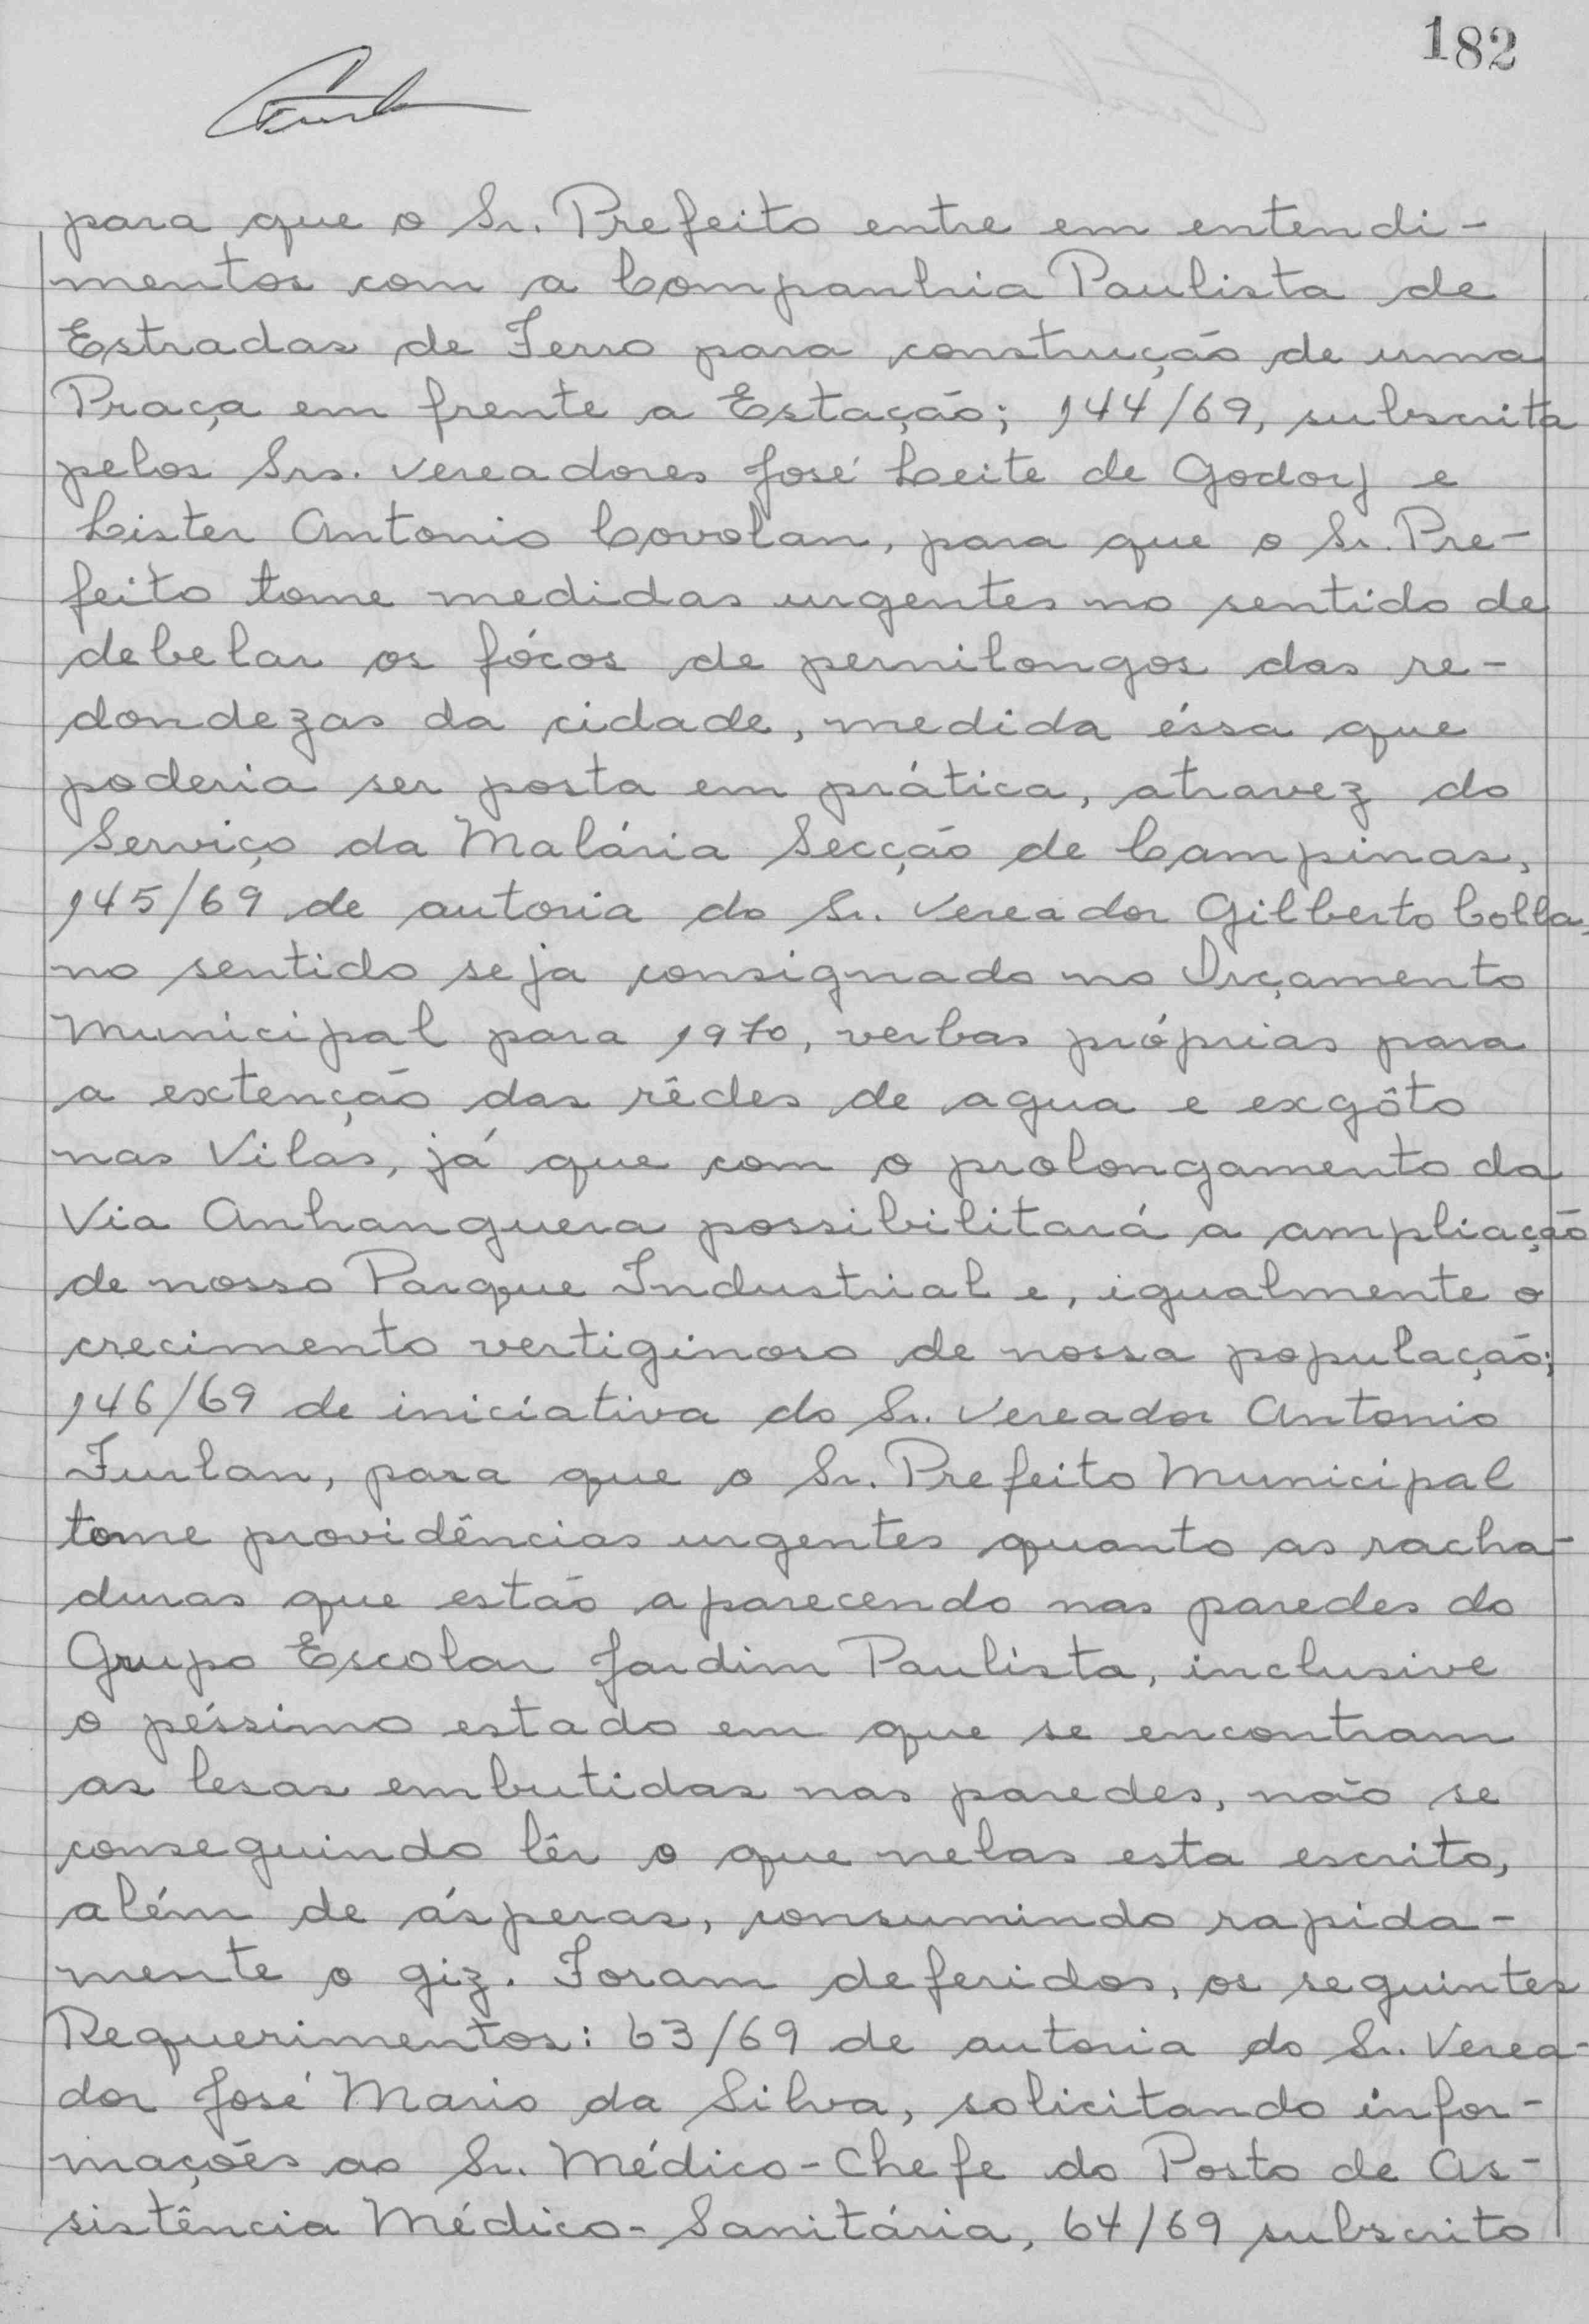 182
para que o Sr. Prefeito entre em entendi-
mentos com a Companhia Paulista de
Estradas de Ferro para construção de uma
Praça em frente a Estação; 144/69, subscrita
pelos Srs. Vereadores José Leite de Godoy e
Lister Antonio Covolan, para que o Sr. Pre-
feito tome medidas urgentes no sentido de
debelar os fócos de pernilongos das re-
dondezas da cidade, medida éssa que
poderia ser posta em prática, atravez do
Serviço da Malária Secção de Campinas,
145/69 de autoria do Sr. Vereador Gilberto Colla,
no sentido seja consignado no Orçamento
Municipal para 1970, verbas próprias para
a extenção das rêdes de agua e exgôto
nas Vilas, já que com o prolongamento da
Via Anhanguera possibilitará a ampliação
de nosso Parque Industrial e, igualmente o
crecimento vertiginoso de nossa população;
146/69 de iniciativa do Sr. Vereador Antonio
Furlan, para que o Sr. Prefeito Municipal
tome providências urgentes quanto as racha-
duras que estão aparecendo nas paredes do
Grupo Escolar Jardim Paulista, inclusive
o péssimo estado em que se encontram
as lesas embutidas nas paredes, não se
conseguindo lêr o que nelas esta escrito,
além de ásperas, consumindo rapida-
mente o giz. Foram deferidos, os seguintes
Requerimentos: 63/69 de autoria do Sr. Verea-
dor José Mario da Silva, solicitando infor-
mações ao Sr. Médico-Chefe do Posto de As-
sistência Médico-Sanitária, 64/69 subscrito